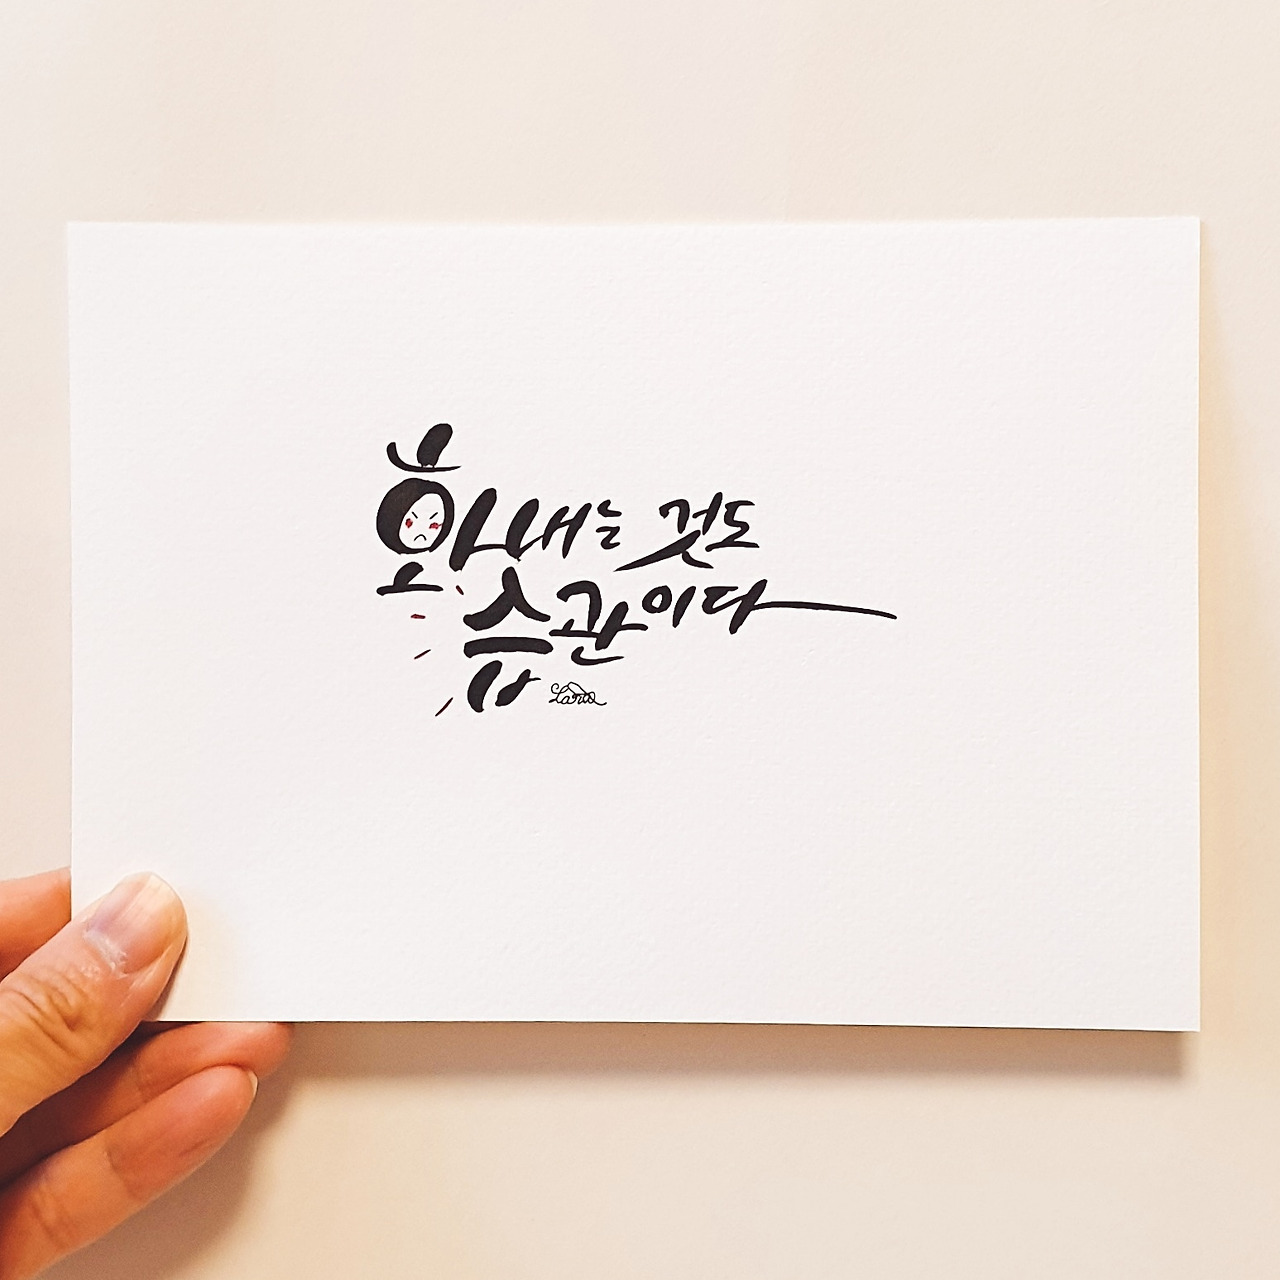 화내는 것도
습관이다